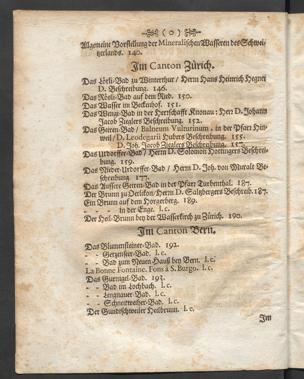 ( o )
Allgemeine Vorstellung der Mineralischen Wasseren des Schwei-
tzerlands. 140.
Im Canton Zürich.
Das Lörli-Bad zu Winterthur / Herrn Hans Heinrich Hegner
D. Beschreibung. 146.
Das Rösli-Bad auf dem Ried. 150.
Das Wasser im Beckenhof. 151.
Das Weng-Bad in der Herrschafft Knonau: Herr D. Johann
Jacob Zieglers Beschreibung. 152.
Das Geiren-Bad / Balneum Vulturinum, in der Pfarr Hin-
weil / D. Leodegarii Hubers Beschreibung. 155.
D. Joh. Jacob Zieglers Beschreibung. 157.
Das Urdorffer-Bad / Herrn D. Salomon Hottingers Beschrei-
bung. 159.
Das Nieder-Urdorffer-Bad / Herrn D. Joh. von Muralt Be-
schreibung. 177.
Das Äussere Geiren-Bad in der Pfarr Turbenthal. 187.
Der Brunn zu Oerlikon, Herrn D. Salzbergers Beschreib. 187.
Ein Brunn auf dem Horgerberg. 189.
- - - in der Enge. l. c.
Der Heil-Brunn bey der Wasserkirch zu Zürich. 190.
Im Canton Bern.
Das Blumensteiner-Bad. 192.
- - Gerzensee-Bad. l. c.
- - Bad zum Neuen Hauß bey Bern. l. c.
La Bonne Fontaine. Fons à S. Burgo. l. c.
Das Gurnigel-Bad. 193.
- - Bad im Lochbach. l. c.
- - Lengnauer-Bad. l. c.
- - Schneitweiher-Bad. l. c.
Der Gundischweiler Heilbrunn. l. c.
Im